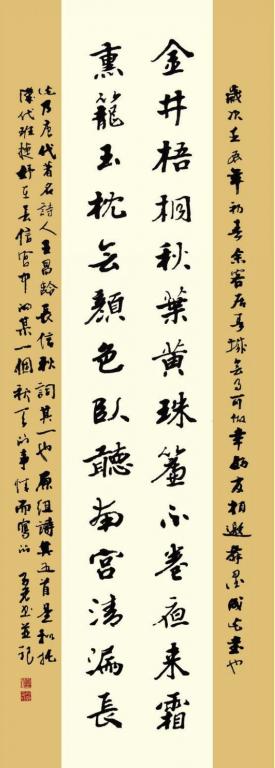 歲次壬辰年初春余客居羊城無事可做幸好友相邀舞墨成此書也
金井梧桐秋葉黃珠簾不卷夜來霜
熏籠玉枕無顏色臥聽南宮清漏長
此乃唐代著名詩人王昌齡長信秋詞其一也原組詩共五首是和托
漢代班婕妤在長信宮中的某一個秋天的事情而寫的
書並記